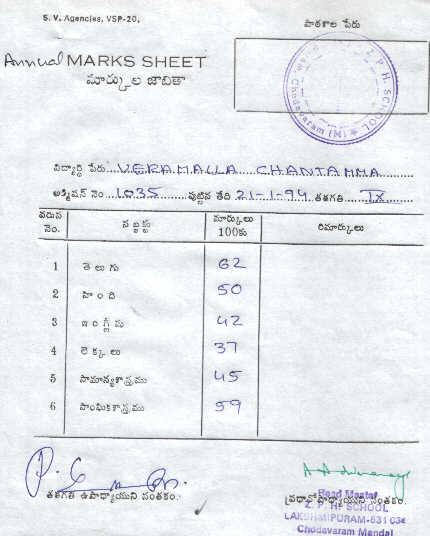 S. V. Agencies, VSP-20.
పాఠశాల పేరు
Annual MARKS SHEET
మార్కుల జాబితా
Z. P. H. SCHOOL
Chodavaram (M)
విద్యార్థి పేరు VERAMALLA CHANTAMMA
అడ్మిషన్ నెం. 1035 పుట్టిన తేది 21-1-94 తరగతి IX
వరుస నెం. సబ్జెక్టు మార్కులు 100కు రిమార్కులు
1 తెలుగు 62
2 హింది 50
3 ఇంగ్లీషు 42
4 లెక్కలు 37
5 సామాన్యశాస్త్రము 45
6 సాంఘికశాస్త్రము 59
తరగతి ఉపాధ్యాయుని సంతకం.
ప్రధానోపాధ్యాయుని సంతకం.
Head Master
Z. P. H. SCHOOL
LAKSHMIPURAM-531 034
Chodavaram Mandal